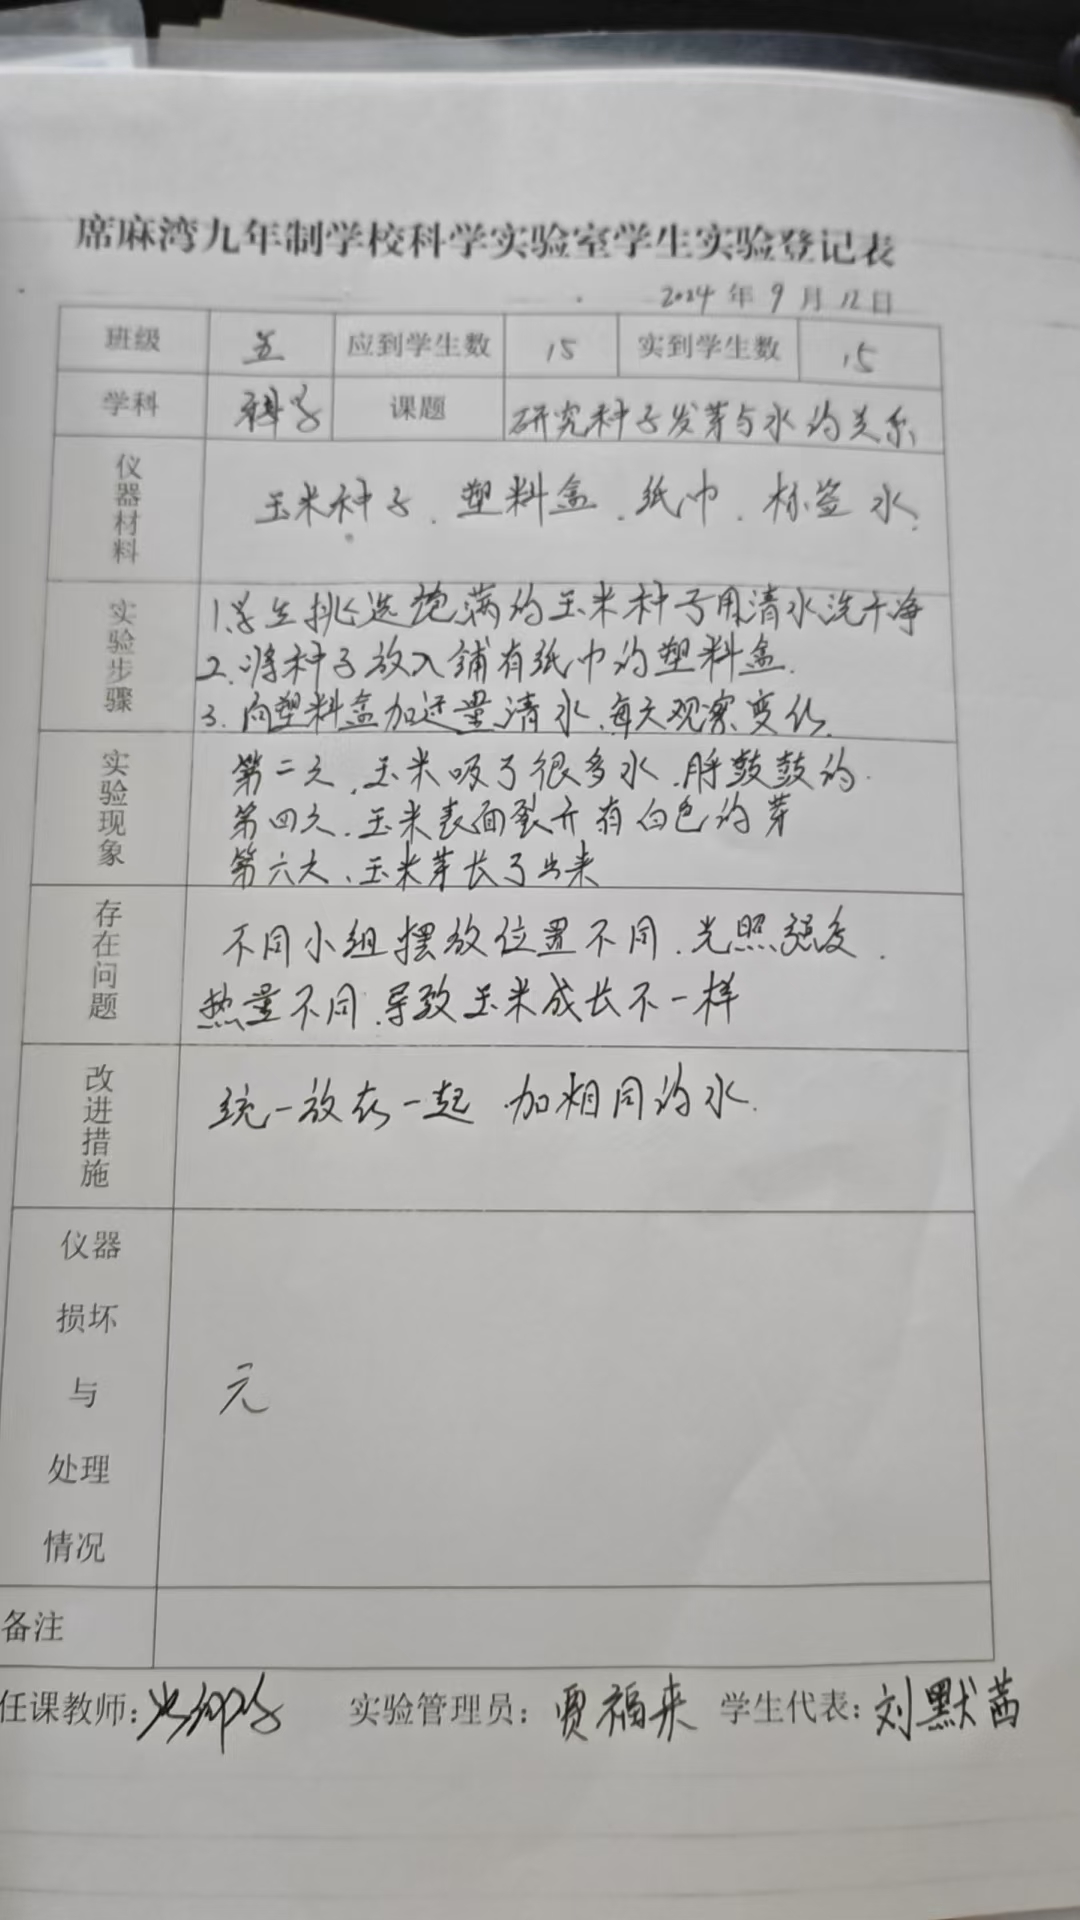 席麻湾九年制学校科学实验室学生实验登记表
2024 年 9 月 12 日
班级 五 应到学生数 15 实到学生数 15
学科 科学 课题 研究种子发芽与水的关系
仪器材料 玉米种子、塑料盒、纸巾、标签 水.
实验步骤 1.学生挑选饱满的玉米种子用清水洗干净
2.将种子放入铺有纸巾的塑料盒.
3.向塑料盒加适量清水,每天观察变化.
实验现象 第二天、玉米吸了很多水,胖鼓鼓的.
第四天、玉米表面裂开有白色的芽
第六天、玉米芽长了出来
存在问题 不同小组摆放位置不同、光照强度.
热量不同、导致玉米成长不一样
改进措施 统一放在一起 加相同的水.
仪器
损坏
与
处理
情况
无
备注
任课教师: 实验管理员: 贾福来 学生代表: 刘默茜